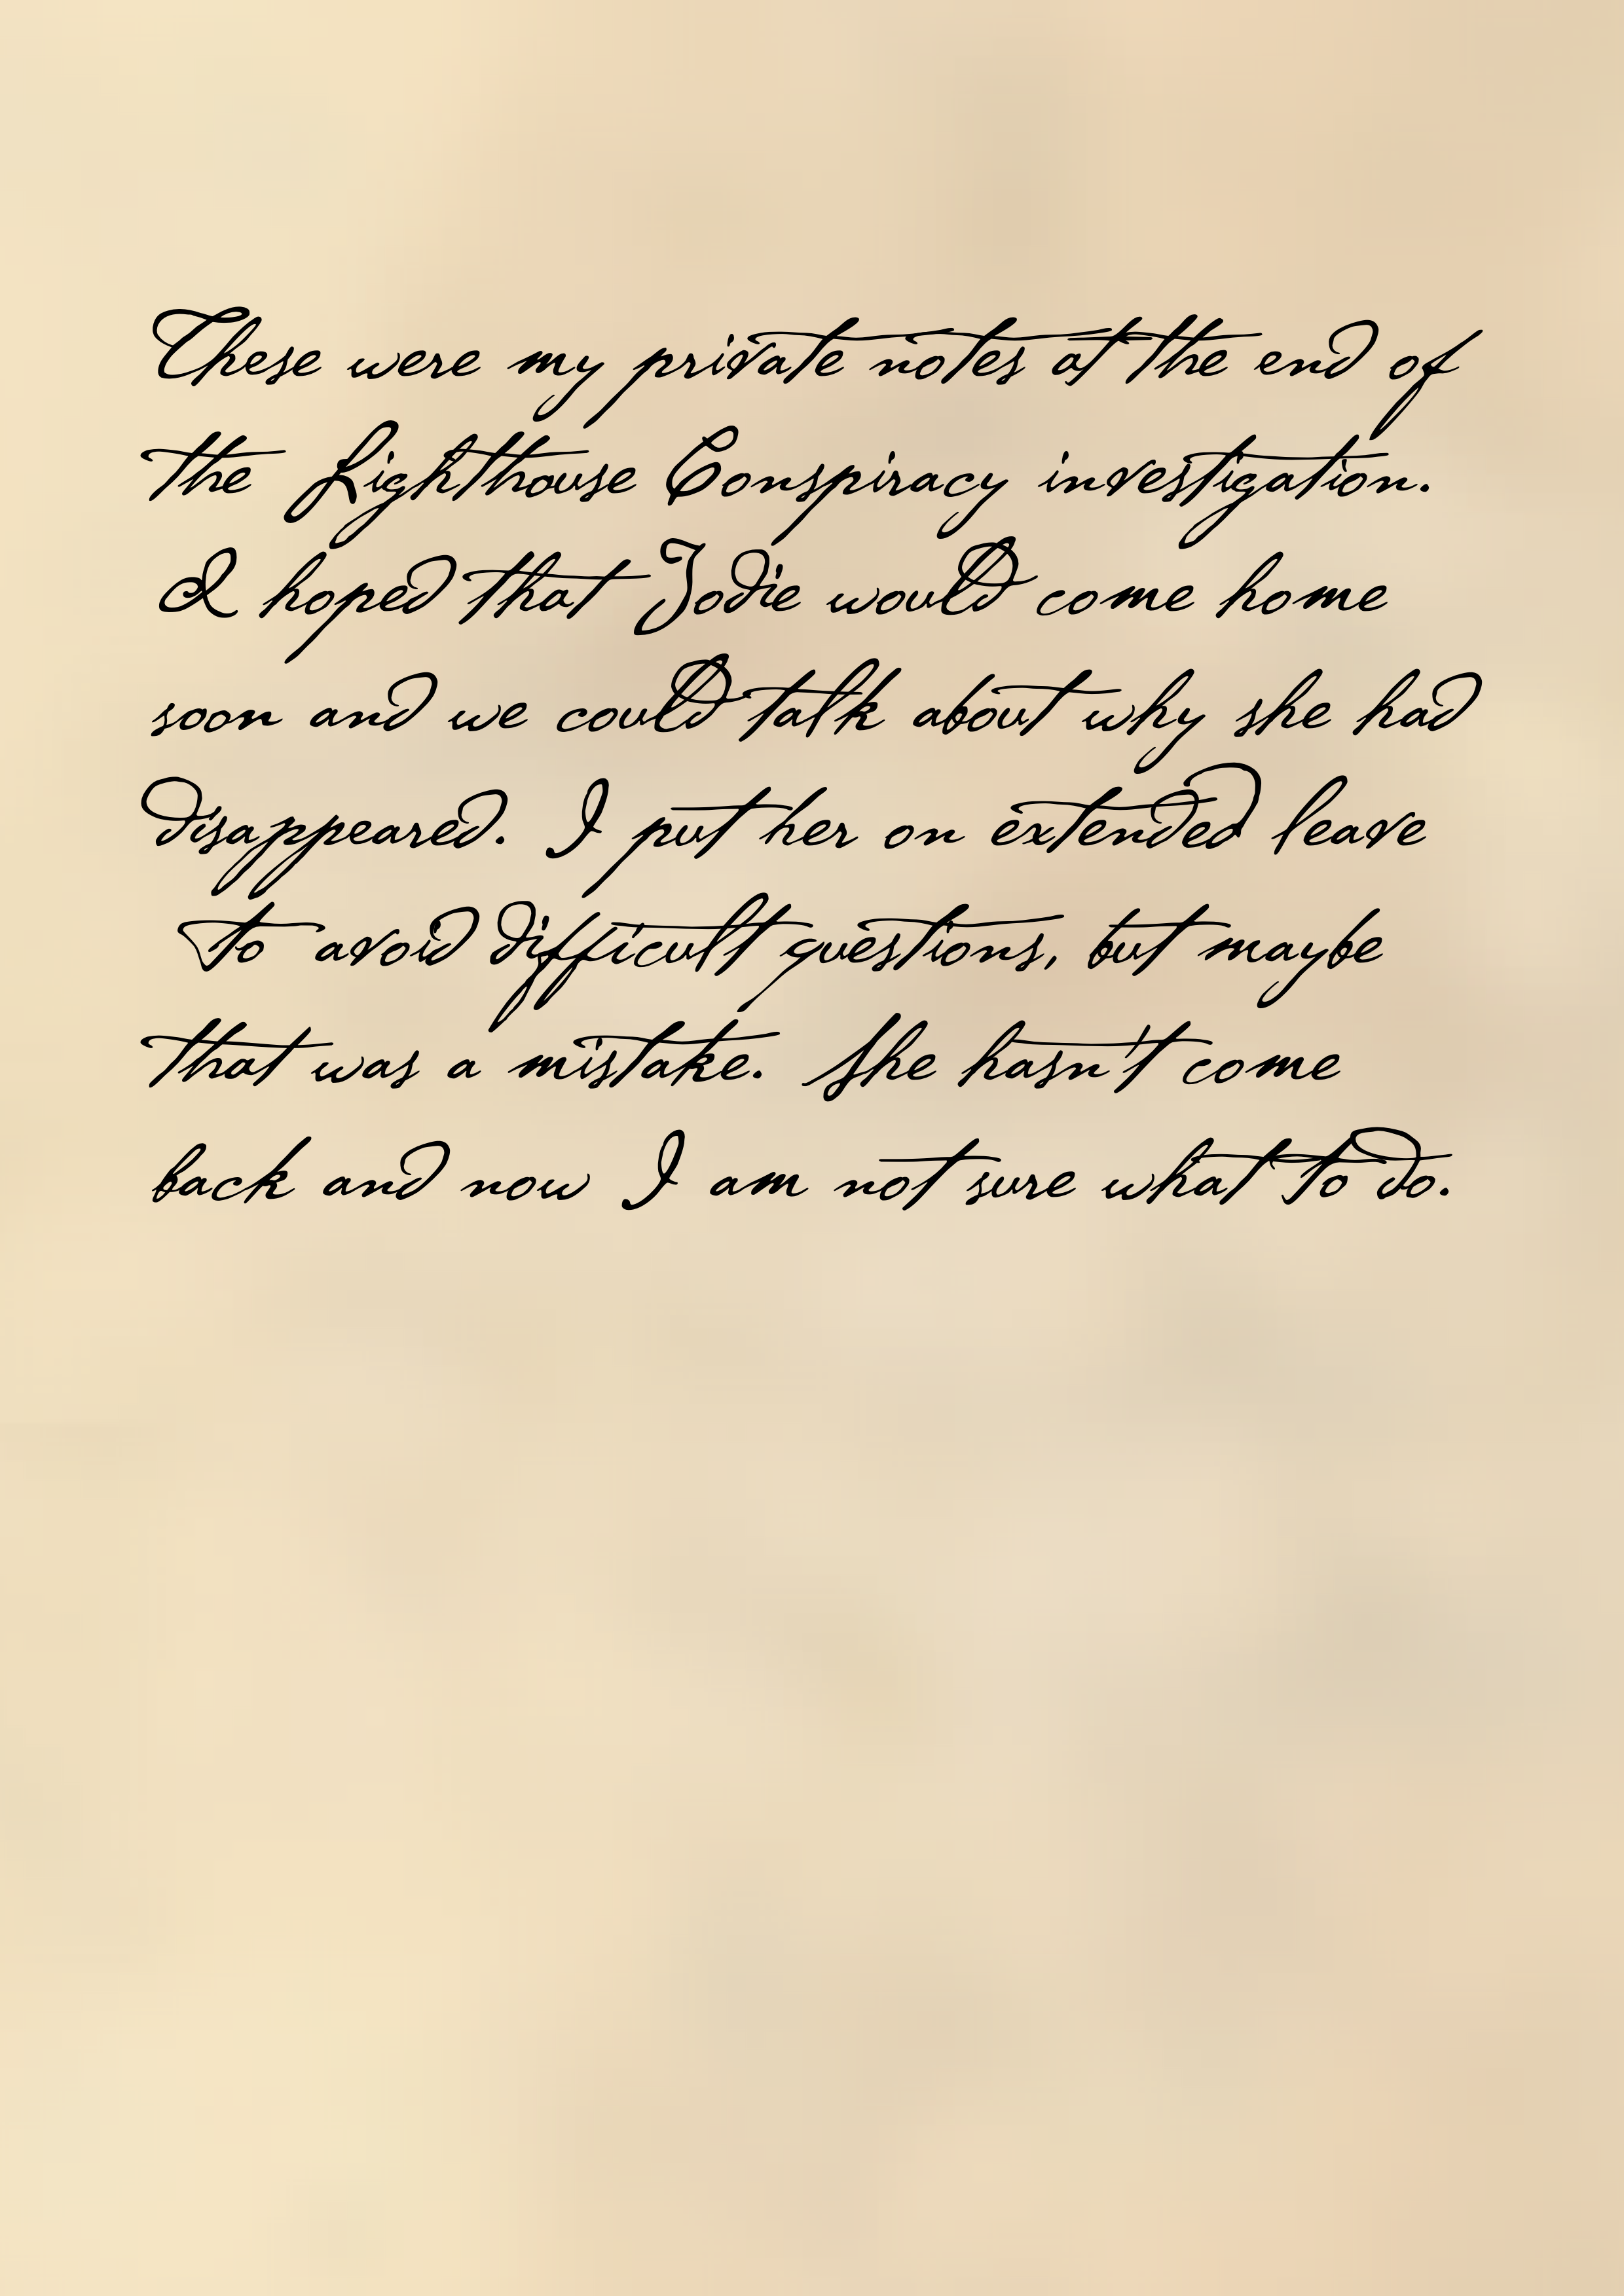 These were my private notes at the end of
the Lighthouse Conspiracy investigation.
I hoped that Jodie would come home
soon and we could talk about why she had
disappeared. I put her on extended leave
to avoid difficult questions, but maybe
that was a mistake. She hasn't come
back and now I am not sure what to do.